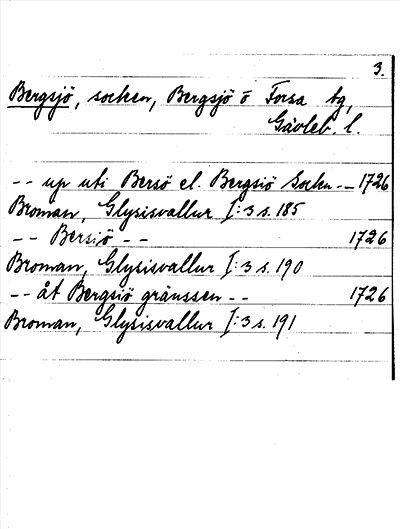 3.
Bergsjö, socken, Bergsjö o Forsa tg,
Gävleb. l.
-- up uti Bersö el. Bergsiö Sockn -- 1726
Broman, Glysisvallur I:3 s. 185
-- Bersiö -- 1726
Broman, Glysisvallur I:3 s. 190
-- åt Bergsiö gränssen -- 1726
Broman, Glysisvallur I:3 s. 191